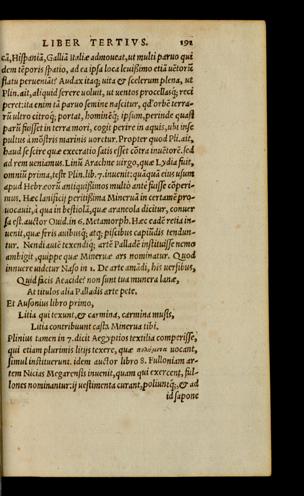 LIBER TERTIVS. 192
cā, Hispaniā, Galliā Italiæ admoueat, ut multi paruo qui
dem tēporis spatio, ad ea ipsa loca leuissimo etiā uētorū
flatu perueniāt? Audax itaq; uita & scelerum plena, ut
Plin. ait, aliquid serere uoluit, ut uentos procellasq; reci
peret: ita enim tā paruo semine nascitur, qd' orbē terra-
rū ultro citroq; portat, hominēq; ipsum, perinde quasi
parū fuisset in terra mori, cogit perire in aquis, ubi inse
pultus à mōstris marinis uoretur. Propter quod Pli. ait,
haud se scire quæ execratio satis esset cōtra inuētorē. sed
ad rem ueniamus. Linū Arachne uirgo, quæ Lydia fuit,
omniū prima, teste Plin. lib. 7. inuenit: quāquā eius usum
apud Hebræorū antiquissimos multo antè fuisse cōperi-
mus. Hæc lanificij peritissima Mineruā in certamē pro-
uocauit, à qua in bestiolā, quæ araneola dicitur, conuer
sa est. auctor Ouid. in 6. Metamorph. Hæc eadē retia in-
uenit, quæ feris auibusq; atq; piscibus capiūdis tendun-
tur. Nendi autē texendiq; artē Palladē instituisse nemo
ambigit, quippe quæ Mineruæ ars nominatur. Quod
innuere uidetur Naso in 1. De arte amādi, his uersibus,
Quid facis Aeacide? non sunt tua munera lanæ,
At titulos alia Palladis arte pete.
Et Ausonius libro primo,
Licia qui texunt, & carmina, carmina musis,
Licia contribuunt casta Minerua tibi.
Plinius tamen in 7. dicit Aegyptios textilia comperisse,
qui etiam plurimis litijs texere, quæ πολύμιτα uocant,
simul instituerunt. idem auctor libro 8. Fulloniam ar-
tem Nicias Megarensis inuenit, quam qui exercent, ful-
lones nominantur: ij uestimenta curant, poliuntq;, & ad
id sapone